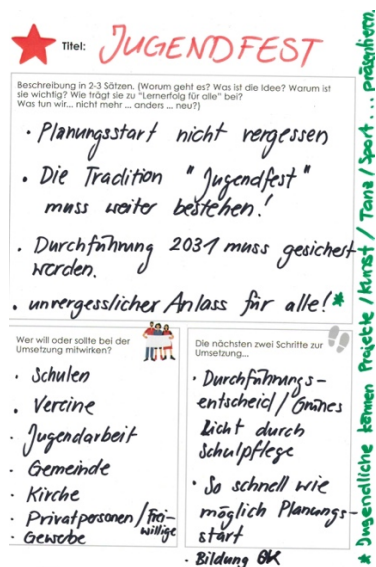 Titel: JUGENDFEST
Beschreibung in 2-3 Sätzen. (Worum geht es? Was ist die Idee? Warum ist
sie wichtig? Wie trägt sie zu "Lernerfolg für alle" bei?
Was tun wir... nicht mehr ... anders ... neu?)
· Planungsstart nicht vergessen
· Die Tradition "Jugendfest"
muss weiter bestehen!
· Durchführung 2031 muss gesichert
werden.
· unvergesslicher Anlass für alle! *
Wer will oder sollte bei der
Umsetzung mitwirken?
· Schulen
· Vereine
· Jugendarbeit
· Gemeinde
· Kirche
· Privatpersonen / Frei-
willige
· Gewerbe
Die nächsten zwei Schritte zur
Umsetzung...
· Durchführungs-
entscheid / Grünes
Licht durch
Schulpflege
· So schnell wie
möglich Planungs-
start
· Bildung OK
* Jugendliche können Projekte / Kunst / Tanz / Sport ... präsentieren.